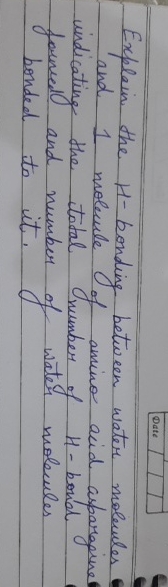 Date
Explain the H-bonding between water molecules
and 1 molecule of amino acid asparagine
indicating the total number of H-bond
formed and number of water molecules
bonded to it.